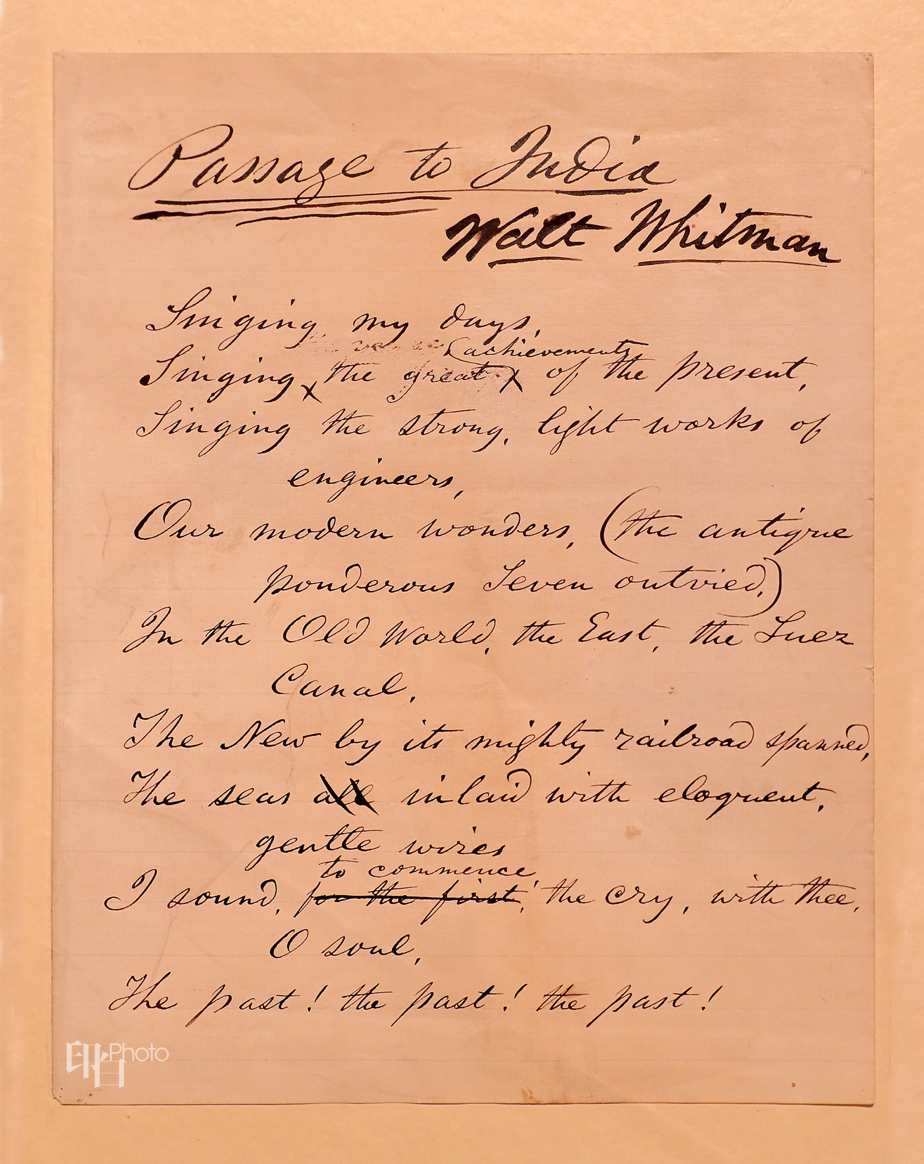 Passage to India
Walt Whitman
Singing my days,
achievements
Singing the great of the present,
Singing the strong, light works of
engineers,
Our modern wonders, (the antique
ponderous Seven outvied,)
In the Old World, the East, the Suez
Canal,
The New by its mighty railroad spanned,
The seas all inlaid with eloquent,
gentle wires
to commence
I sound, for the first, the cry, with thee,
O soul,
The past! the past! the past!
Photo